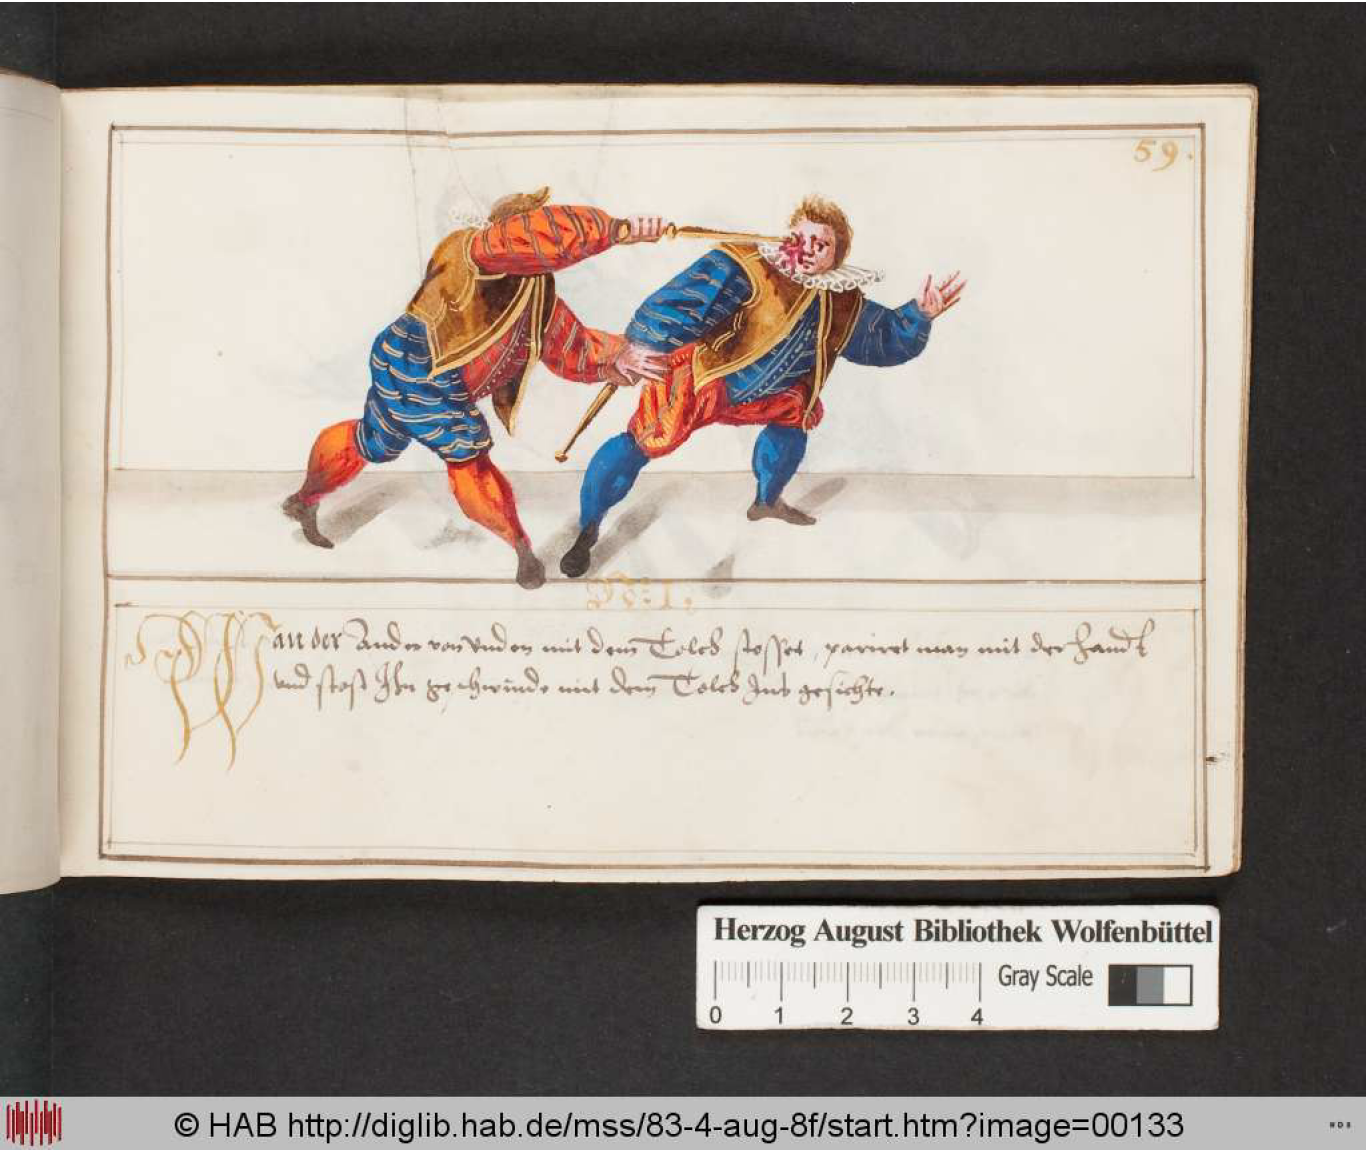 59.
Wan der Ander von Unden mit dem Tolch stosset, pariret man mit der handt
und stost Ihn geschwinde mit dem Tolch Ins gesichte.
Herzog August Bibliothek Wolfenbüttel
Gray Scale
0 1 2 3 4
© HAB http://diglib.hab.de/mss/83-4-aug-8f/start.htm?image=00133